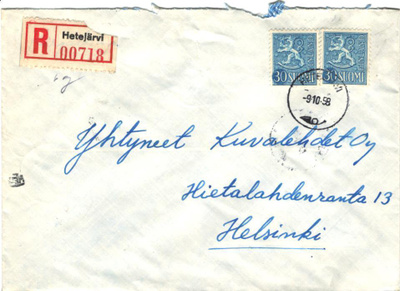 R Hetejärvi
00718
30 SUOMI 30 SUOMI
-9.10.58
Yhtyneet Kuvalehdet Oy
Hietalahdenranta 13
Helsinki